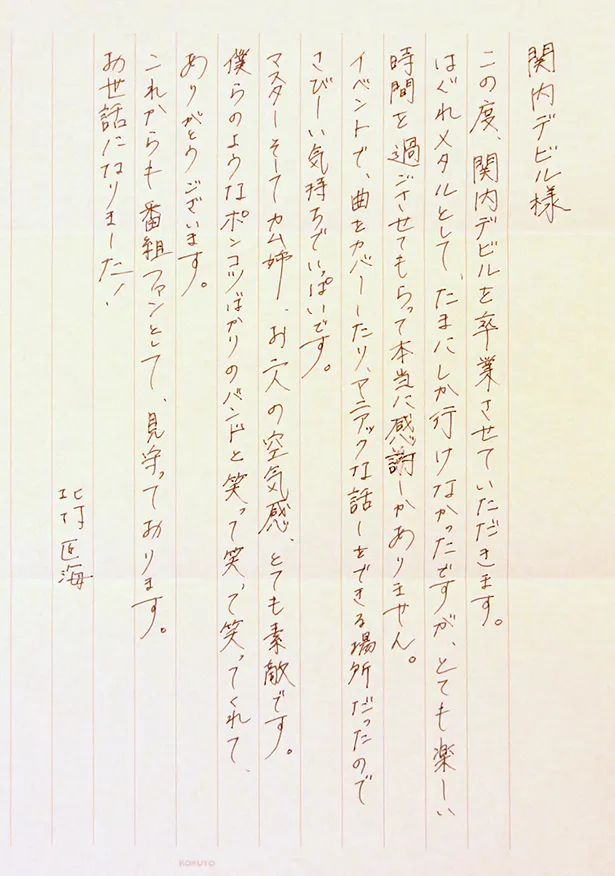 関内デビル様
この度、関内デビルを卒業させていただきます。
はぐれメタルとして、たまにしか行けなかったですが、とても楽しい
時間を過ごさせてもらって本当に感謝しかありません。
イベントで、曲をカバーしたり、マニアックな話しをできる場所だったので
さびしい気持ちでいっぱいです。
マスターそしてカム姉、お二人の空気感、とても素敵です。
僕らのようなポンコツばかりのバンドと笑って笑って笑ってくれて、
ありがとうございます。
これからも番組ファンとして、見守っております。
お世話になりました！
北村匠海
KOKUYO